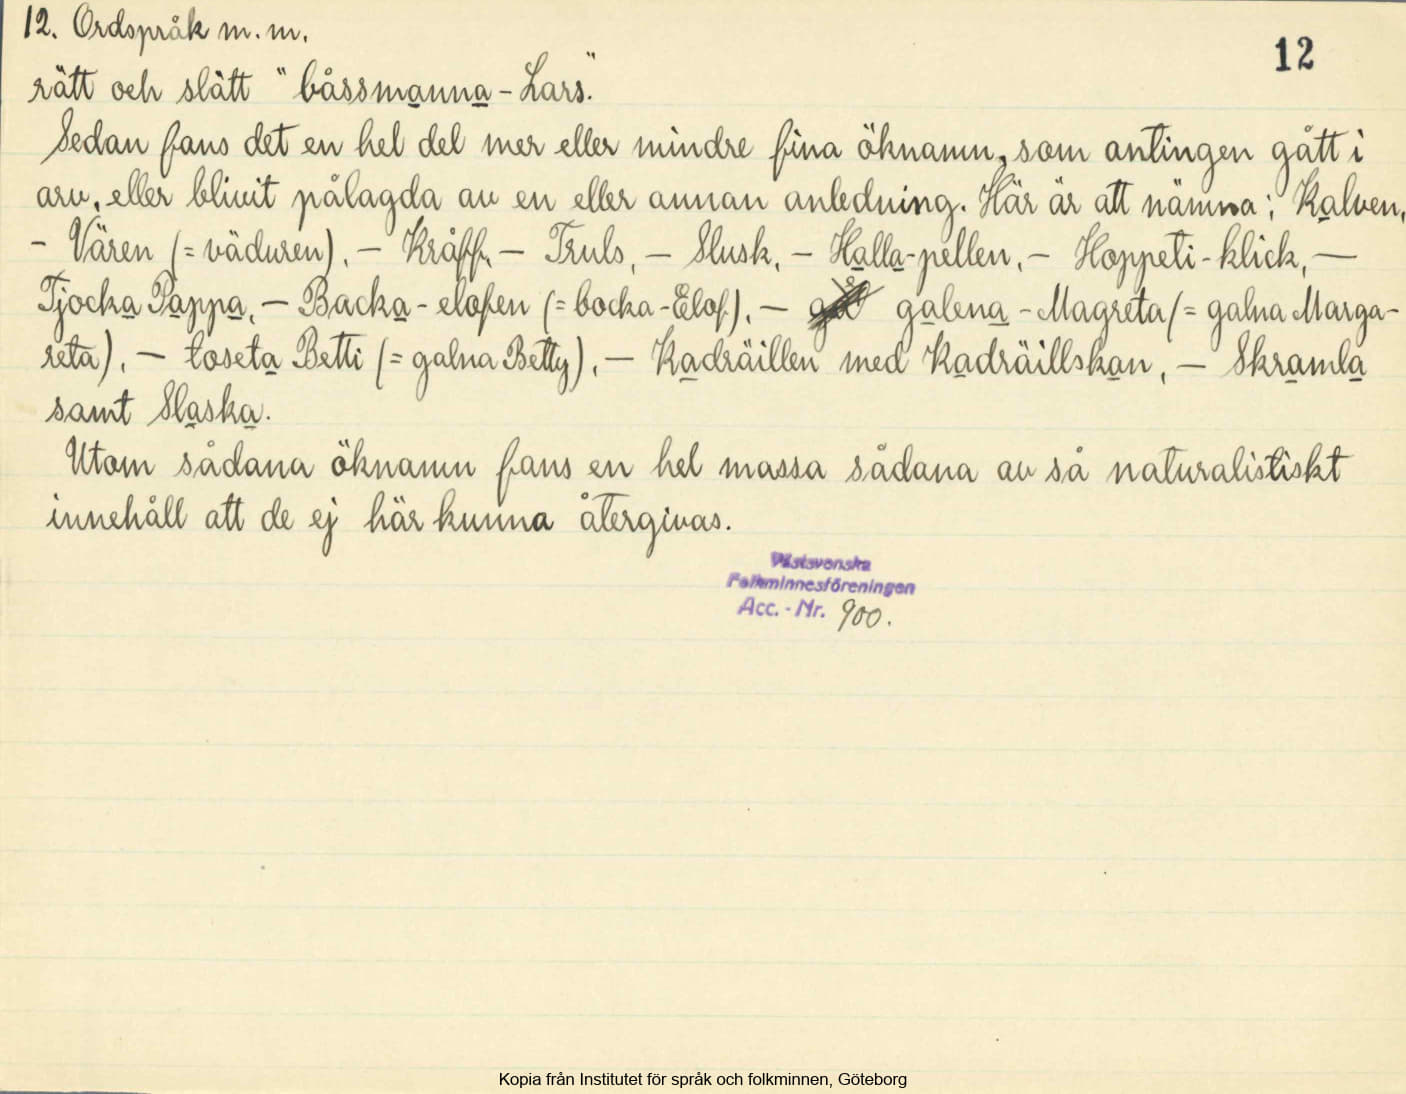 12. Ordspråk m.m.
12
rätt och slätt "båssmanna-Lars".
Sedan fans det en hel del mer eller mindre fina öknamn, som antingen gått i
arv, eller blivit pålagda av en eller annan anledning. Här är att nämna; Kalven,
- Vären (= väduren), - Kråff, - Truls, - Slusk, - Halla-pellen, - Hoppeti-klick, -
Tjocka Pappa, - Backa-elofen (= bocka-Elof), - galena-Magreta (= galna Marga-
reta), - toseta Betti (= galna Betty), - Kadräillen med Kadräillskan, - Skramla
samt Slaska.
Utom sådana öknamn fans en hel massa sådana av så naturalistiskt
innehåll att de ej här kunna återgivas.
Västsvenska
Folkminnesföreningen
Acc.-Nr. 900.
Kopia från Institutet för språk och folkminnen, Göteborg